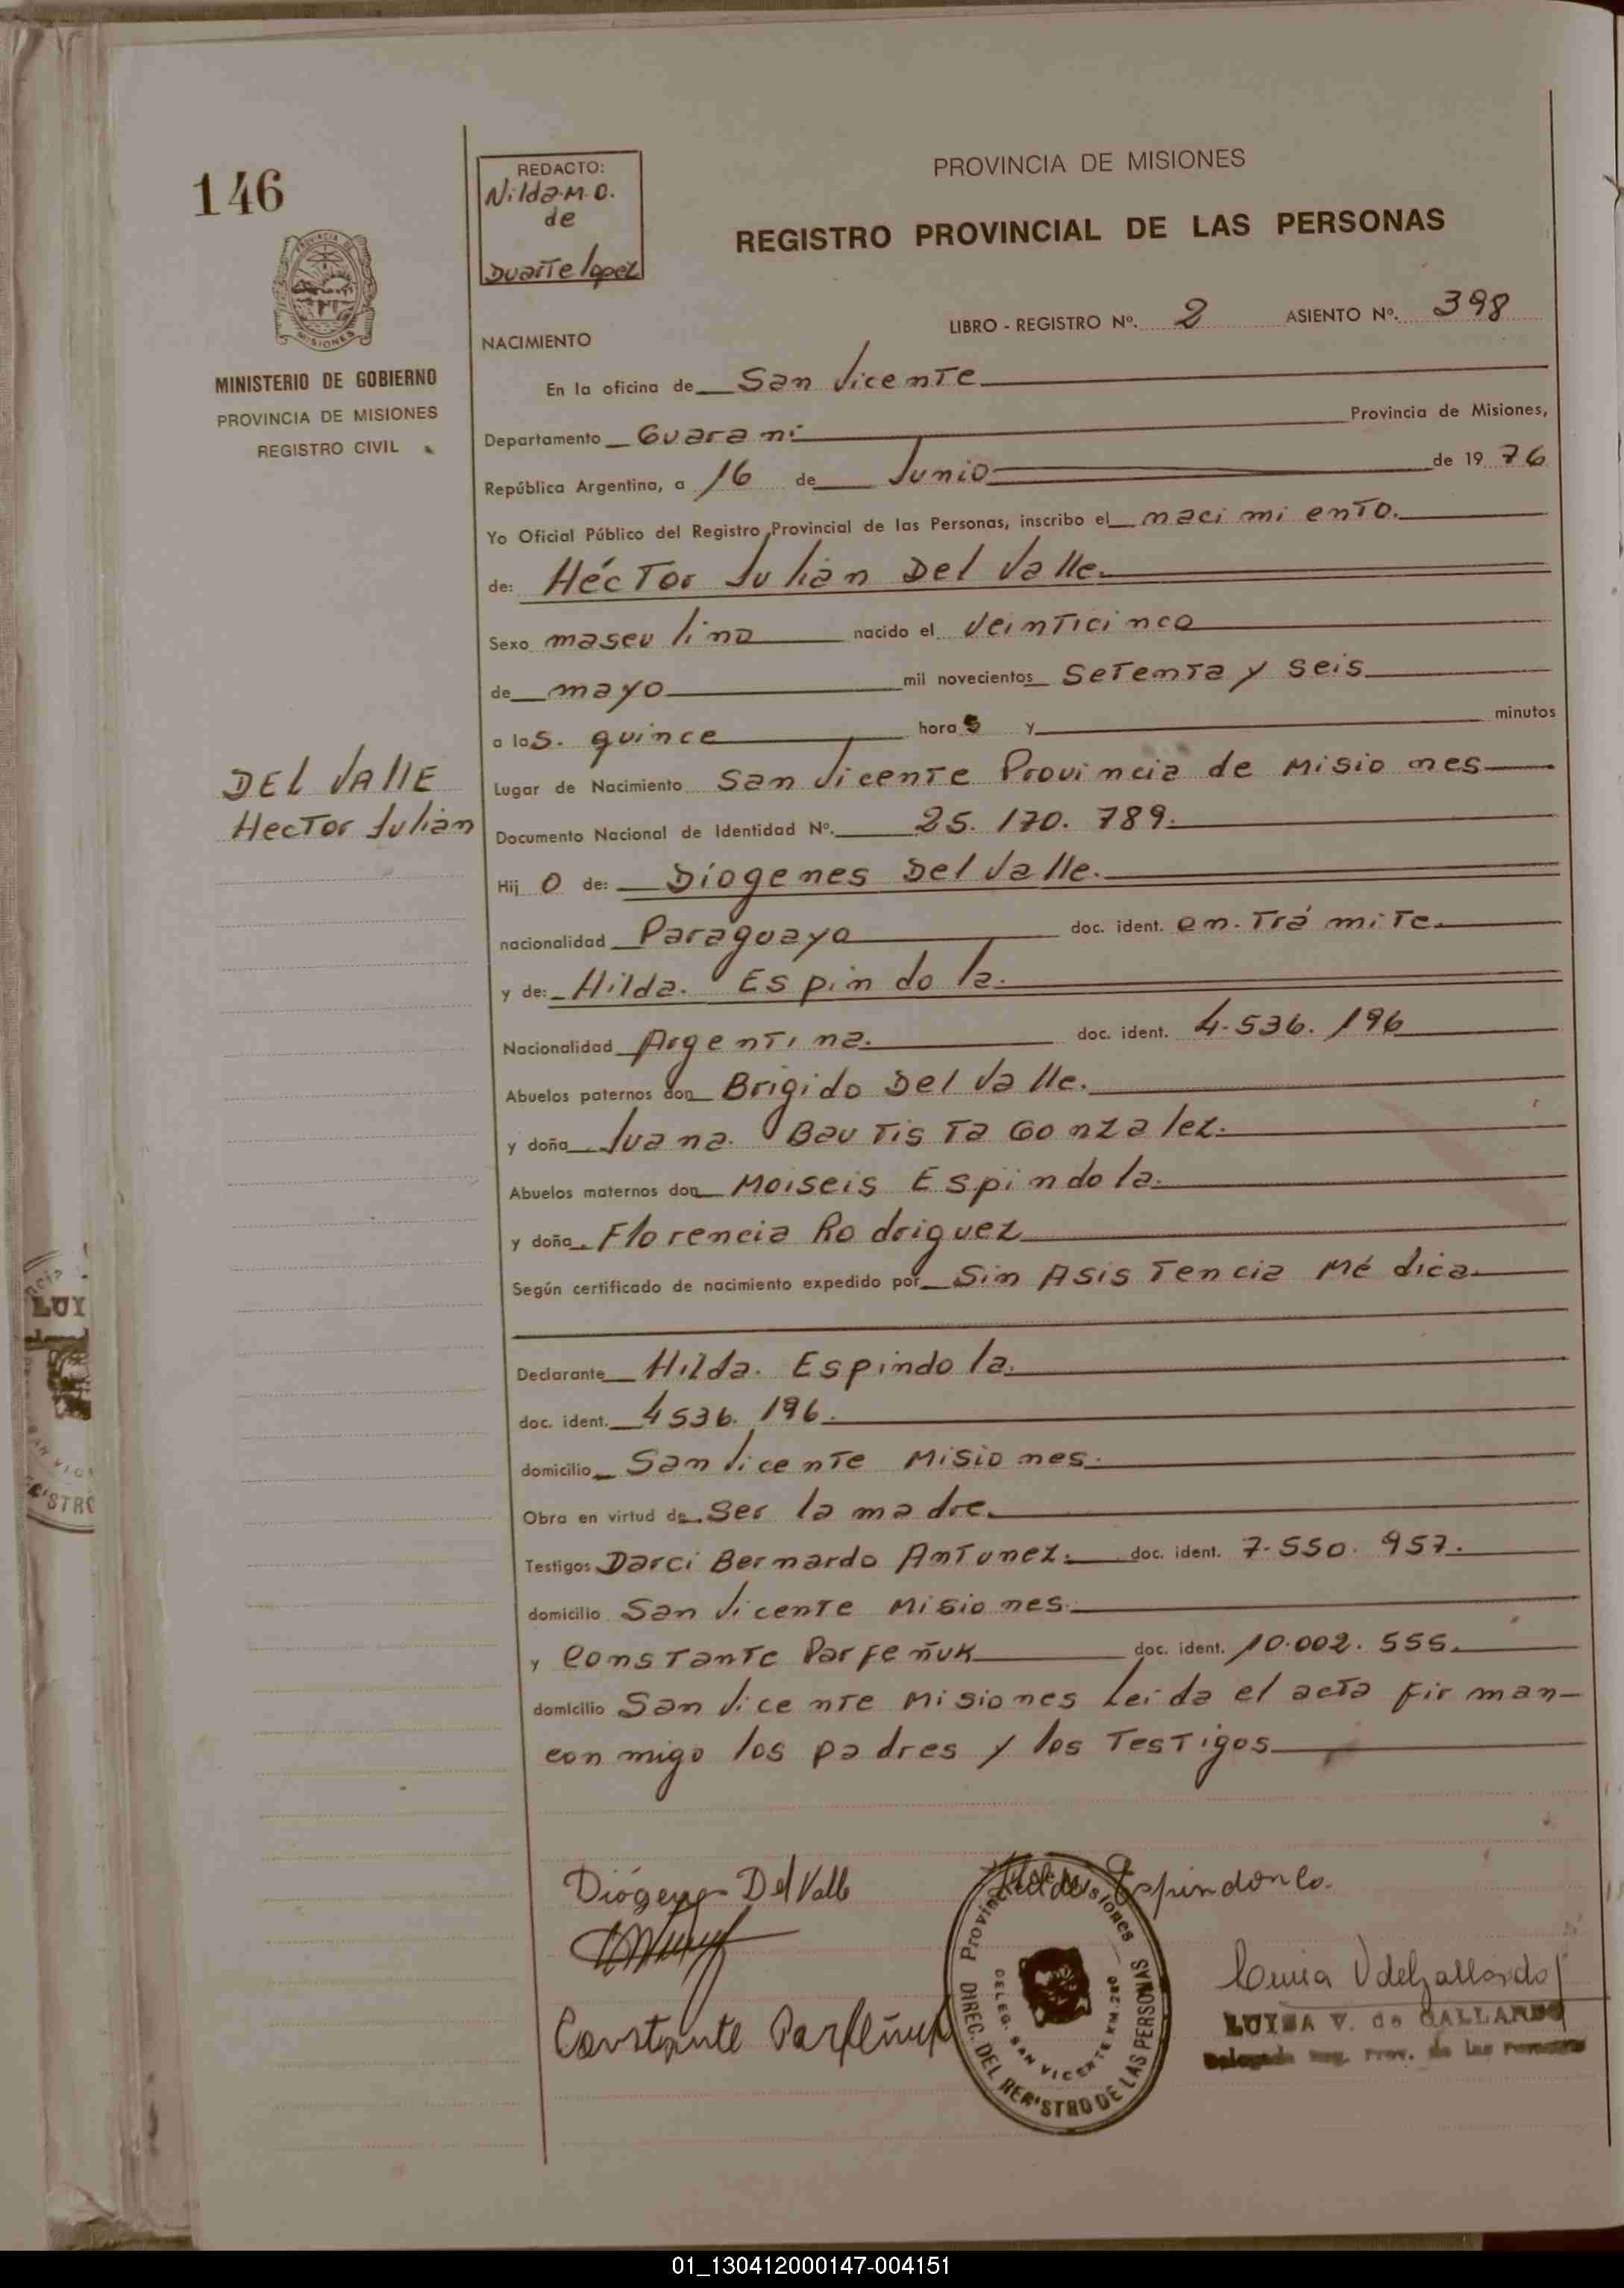 146
REDACTO:
Nilda.M.O.
de
Duarte lopez
PROVINCIA DE MISIONES
REGISTRO PROVINCIAL DE LAS PERSONAS
PROVINCIA DE MISIONES
LIBRO - REGISTRO Nº. 2 ASIENTO Nº. 398
NACIMIENTO
MINISTERIO DE GOBIERNO
PROVINCIA DE MISIONES
REGISTRO CIVIL
En la oficina de San Vicente
Departamento Guarani Provincia de Misiones,
República Argentina, a 16 de Junio de 1976
Yo Oficial Público del Registro Provincial de las Personas, inscribo el nacimiento.
de: Héctor Julián Del Valle.
Sexo masculino nacido el veinticinco
de mayo mil novecientos setenta y seis
a las. quince horas y minutos
DEL VALLE
Hector Julián
Lugar de Nacimiento San Vicente Provincia de Misiones
Documento Nacional de Identidad Nº. 25.170.789.
Hijo de: Diogenes Del Valle.
nacionalidad Paraguaya doc. ident. en.trámite.
y de: Hilda. Espindola.
Nacionalidad Argentina. doc. ident. 4.536.196
Abuelos paternos don Brigido Del Valle.
y doña Juana. Bautista Gonzalez.
Abuelos maternos don Moiseis Espindola.
y doña. Florencia Rodriguez
Según certificado de nacimiento expedido por Sin Asistencia Médica
Declarante Hilda. Espindola.
doc. ident. 4536.196.
domicilio San Vicente Misiones.
Obra en virtud de. Ser la madre.
Testigos Darci Bernardo Antunez. doc. ident. 7.550.957.
domicilio San Vicente Misiones.
y Constante Parfeñuk doc. ident. 10.002.555.
domicilio San Vicente Misiones Leida el acta firman
conmigo los padres y los Testigos
Diógenes Del Valle
Hilda Espindonla.
Constante Parfeñuk
Provincia de Misiones
DIREC. DEL REGISTRO DE LAS PERSONAS
DELEG. SAN VICENTE KM.280
Luisa V de Gallardo
LUISA V. de GALLARDO
Delegada Reg. Prov. de las Personas
LUY
01_130412000147-004151